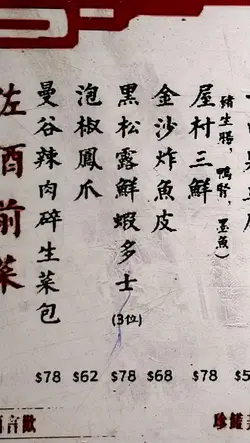 屋村三鮮
(豬生腸，鴨腎，墨魚)
$78
金沙炸魚皮
$68
黑松露鮮蝦多士
(3位)
$78
泡椒鳳爪
$62
曼谷辣肉碎生菜包
$78
佐酒前菜